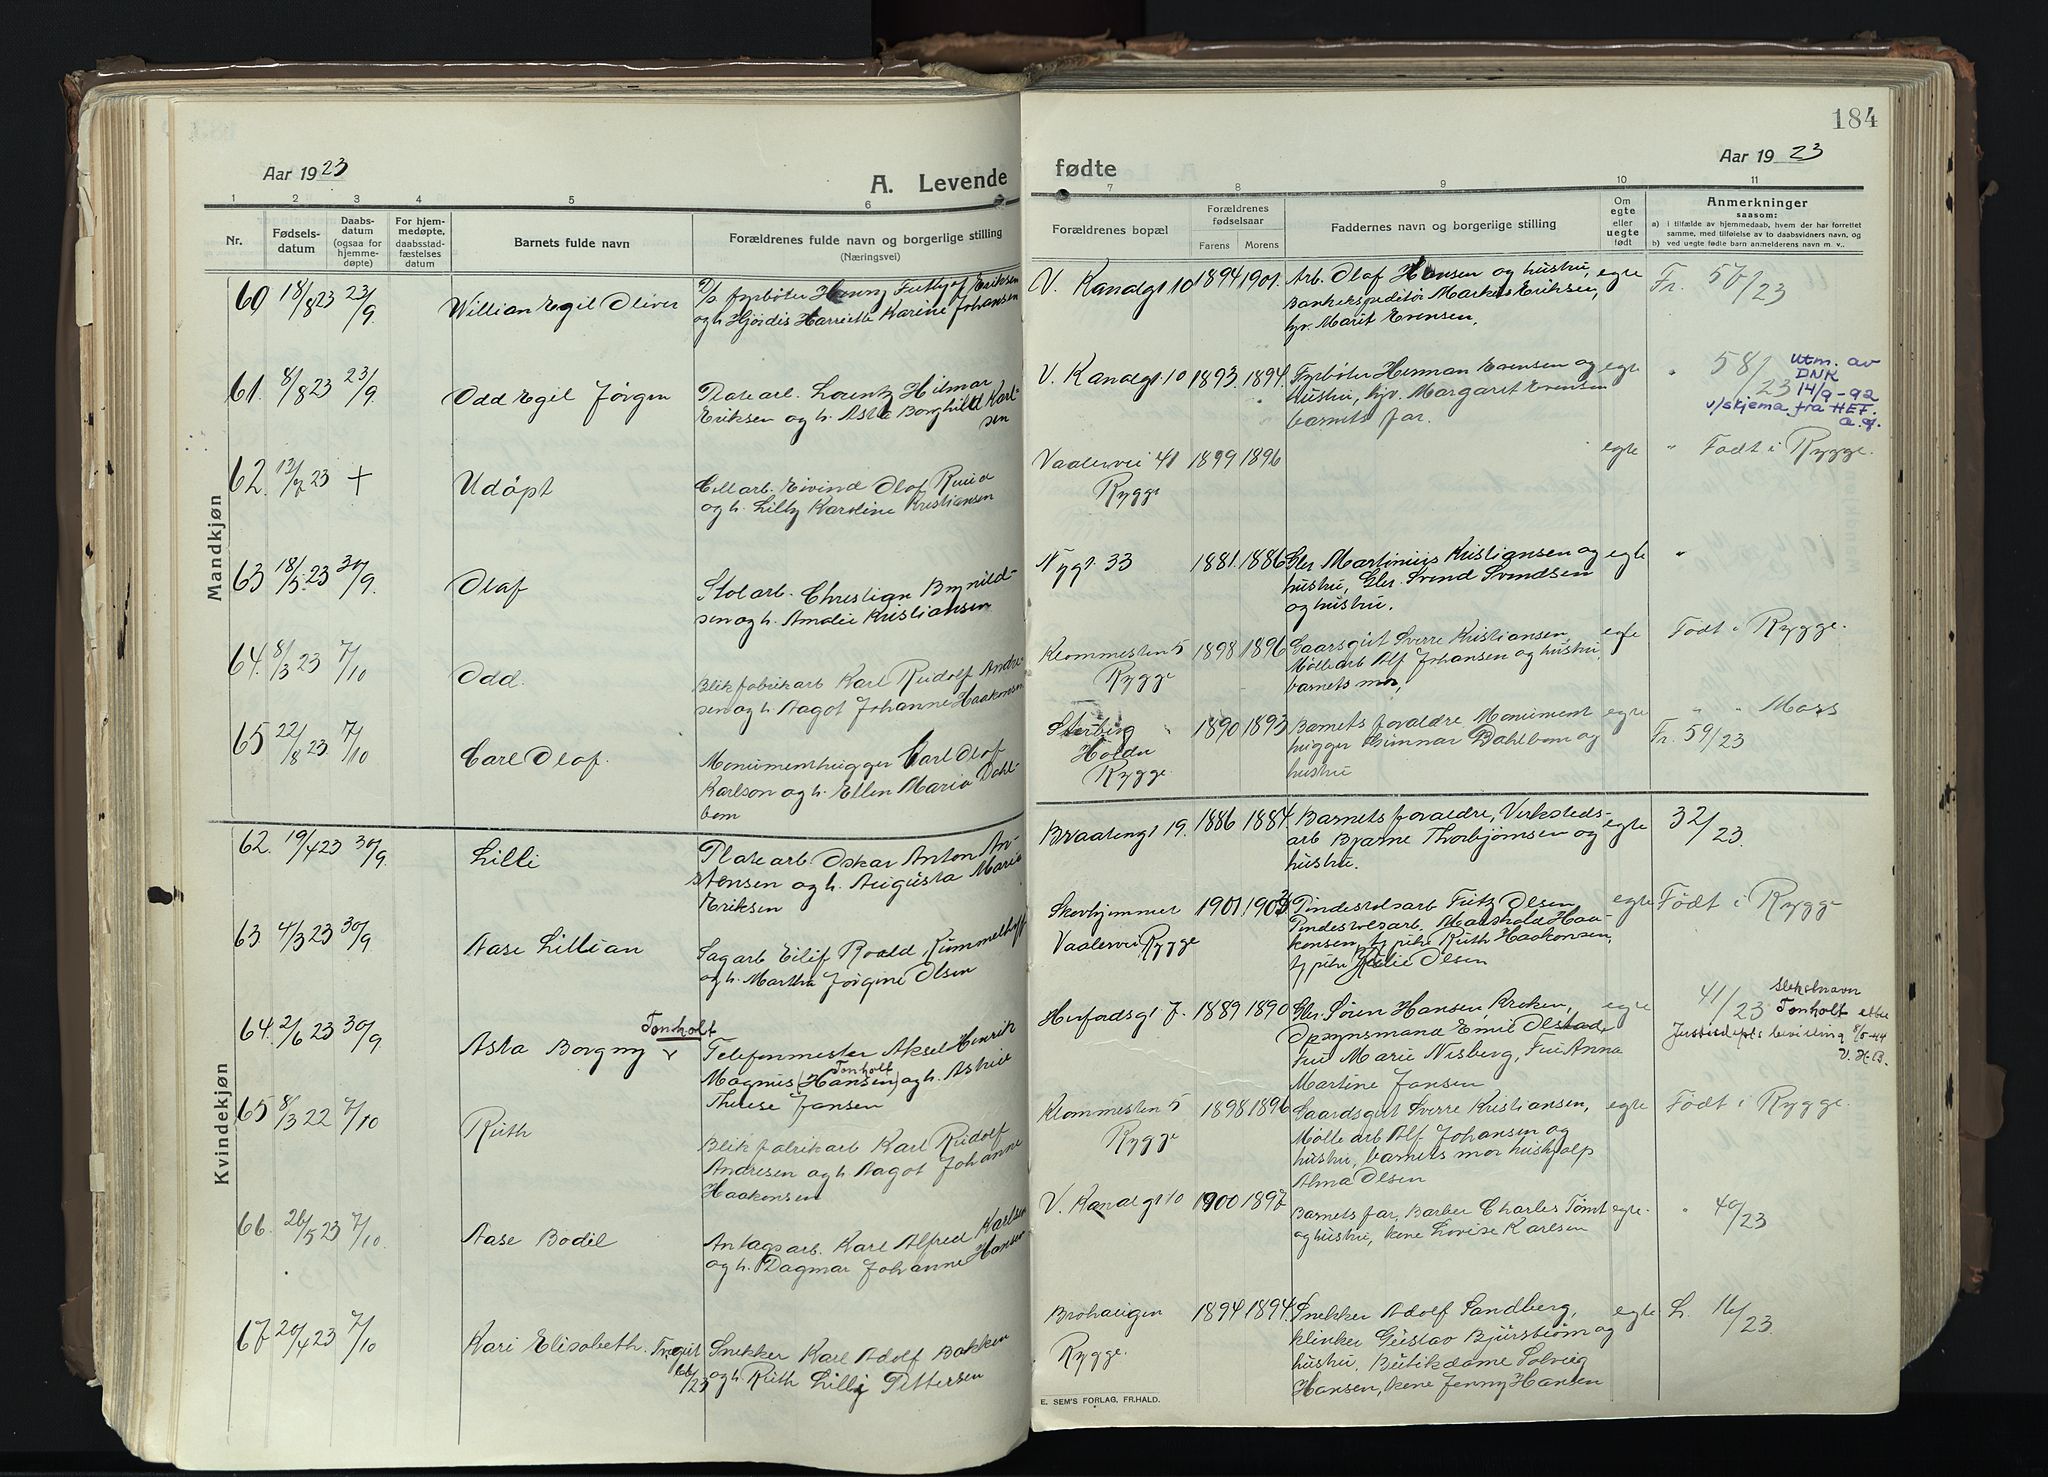 184
Aar 1923
A. Levende
fødte
Aar 1923
1 2 3 4 5 6 7 8 9 10 11
Nr.
Fødsels-
datum
Daabs-
datum
(ogsaa for
hjemme-
døpte)
For hjem-
medøpte,
daabsstad-
fæstelses
datum
Barnets fulde navn
Forældrenes fulde navn og borgerlige stilling
(Næringsvei)
Forældrenes bopæl
Forældrenes
fødselsaar
Farens Morens
Faddernes navn og borgerlige stilling
Om
egte
eller
uegte
født
Anmerkninger
saasom:
a) i tilfælde av hjemmedaab, hvem der har forrettet
samme, med tilføielse av to daabsvidners navn, og
b) ved uegte fødte barn anmelderens navn m. v..
Mandkjøn
60 18/8 23 23/9.
Willian Egil Oliver
D/s fyrbøter Henny Eriksen
og h. Hjørdis Harriette Karine Johansen
V. Kanalgt 10 1894 1901.
Arb. Olaf Hansen og hustru,
Bankekspeditør Markus Eriksen,
frk. Marit Evensen.
egte
Fr. 57/23
61. 8/8 23 23/9.
Odd Egil Jørgen
Platearb. Lorentz Hilmar
Eriksen og h. Asta Borghild Karl-
sen
V. Kanalgt 10 1893. 1894.
Fyrbøter Herman Evensen og
hustru, frk. Margaret Evensen
barnets far.
egte
" 58/23
Utm. av
DNK
14/9-92
v/skjema fra HEF.
62. 23 +
Udöpt
Cellarb. Eivind Olaf
og h. Lilly Karoline Kristiansen
Vaalervei 41 1899 1896
Rygge
egte
" Født i Rygge.
63 18/5 23 30/9.
Olaf
Stolarb. Christian Brynild-
sen og h. Amalie Kristiansen
Nygt. 33 1881. 1886
Glr. Martinius Kristiansen og
hustru, Glr. Svend Svendsen
og hustru.
egte
"
64. 8/3 23 7/10
Odd.
Blikfabrikarb Karl Rudolf Andre-
sen og h. Aagot Johanne Haakonsen
Klommesten 5 1898 1896
Rygge
Gaardsgut Sverre Kristiansen,
Møllearb Alf Johansen og hustru,
barnets mor,
egte
Født i Rygge.
65 22/8 23 7/10
Carl Olaf.
Monumenthugger Carl Olaf
Karlson og h. Ellen Maria Dahl-
bom
Holder
Rygge
1890 1893
Barnets forældre, Monument
hugger Gunnar Dahlbom og
hustru
egte
" " Moss
Fr. 59/23
Kvindekjøn
62. 19/4 23 30/9.
Lilli
Platearb. Oskar Anton An-
stensen og h. Augusta Maria
Eriksen
Braatengt 19. 1886 1884.
Barnets forældre, Verksteds-
arb Bjarne Thorbjørnsen og
hustru.
egte
32/23.
63 4/3 23 30/9.
Aase Lillian
Sagarb Eilif Roald Rummelhoff
og h. Martha Jørgine Olsen
Skovhjemmet
Vaalervei Rygge
1901.
Pindesvolsarb Fritz Olsen
Pindesvolsarb. Harald Haa-
konsen, tj. pike Ruth Haakonsen,
tj. pike Julie Olsen
egte
Født i Rygge
64. 2/6 23 30/9
Asta Borgny v Tonholt
Telefonmester Aksel Henrik
Magnus (Hansen) Tonholt og h. Astrid
Therese Jansen
Herfordsgt 7. 1889 1890
Glr. Søren Hansen, Kroken,
Opsynsmand Emil Olstad,
Fru Marie Nisberg, Fru Anna
Martine Jansen
egte
41/23 Slektsnavn
Tonholt etter
Justisdepts bevilling 8/5-44
V. H. B.
65 8/3 22 7/10
Ruth
Blikfabrikarb Karl Rudolf
Andresen og h. Aagot Johanne
Haakonsen
Klommesten 5 1898 1896
Rygge
Gaardsgut Sverre Kristiansen,
Møllearb Alf Johansen og
hustru, barnets mor hushjælp
Alma Olsen
egte
Født i Rygge.
66. 26/5 23 7/10.
Aase Bodil
Anlægsarb. Karl Alfred Karlsen
og h. Dagmar Johanne Hansen
V. Kanalgt 10 1900 1897
Barnets far, Barber Charles Tømt
og hustru, Lovise Karlsen
egte.
" 40/23
67 20/4 23 7/10
Kari Elisabeth.
Snekker Karl Adolf Bakken
og h. Ruth Lilly Pettersen
Brohaugen
Rygge.
1894 1894.
Snekker Adolf Sandberg,
klinker Gustav Bjurstrøm og
hustru, Butikdame Solveig
Hansen, Jenny Hansen
egte
L. 16/23.
E. SEM'S FORLAG, FR.HALD.